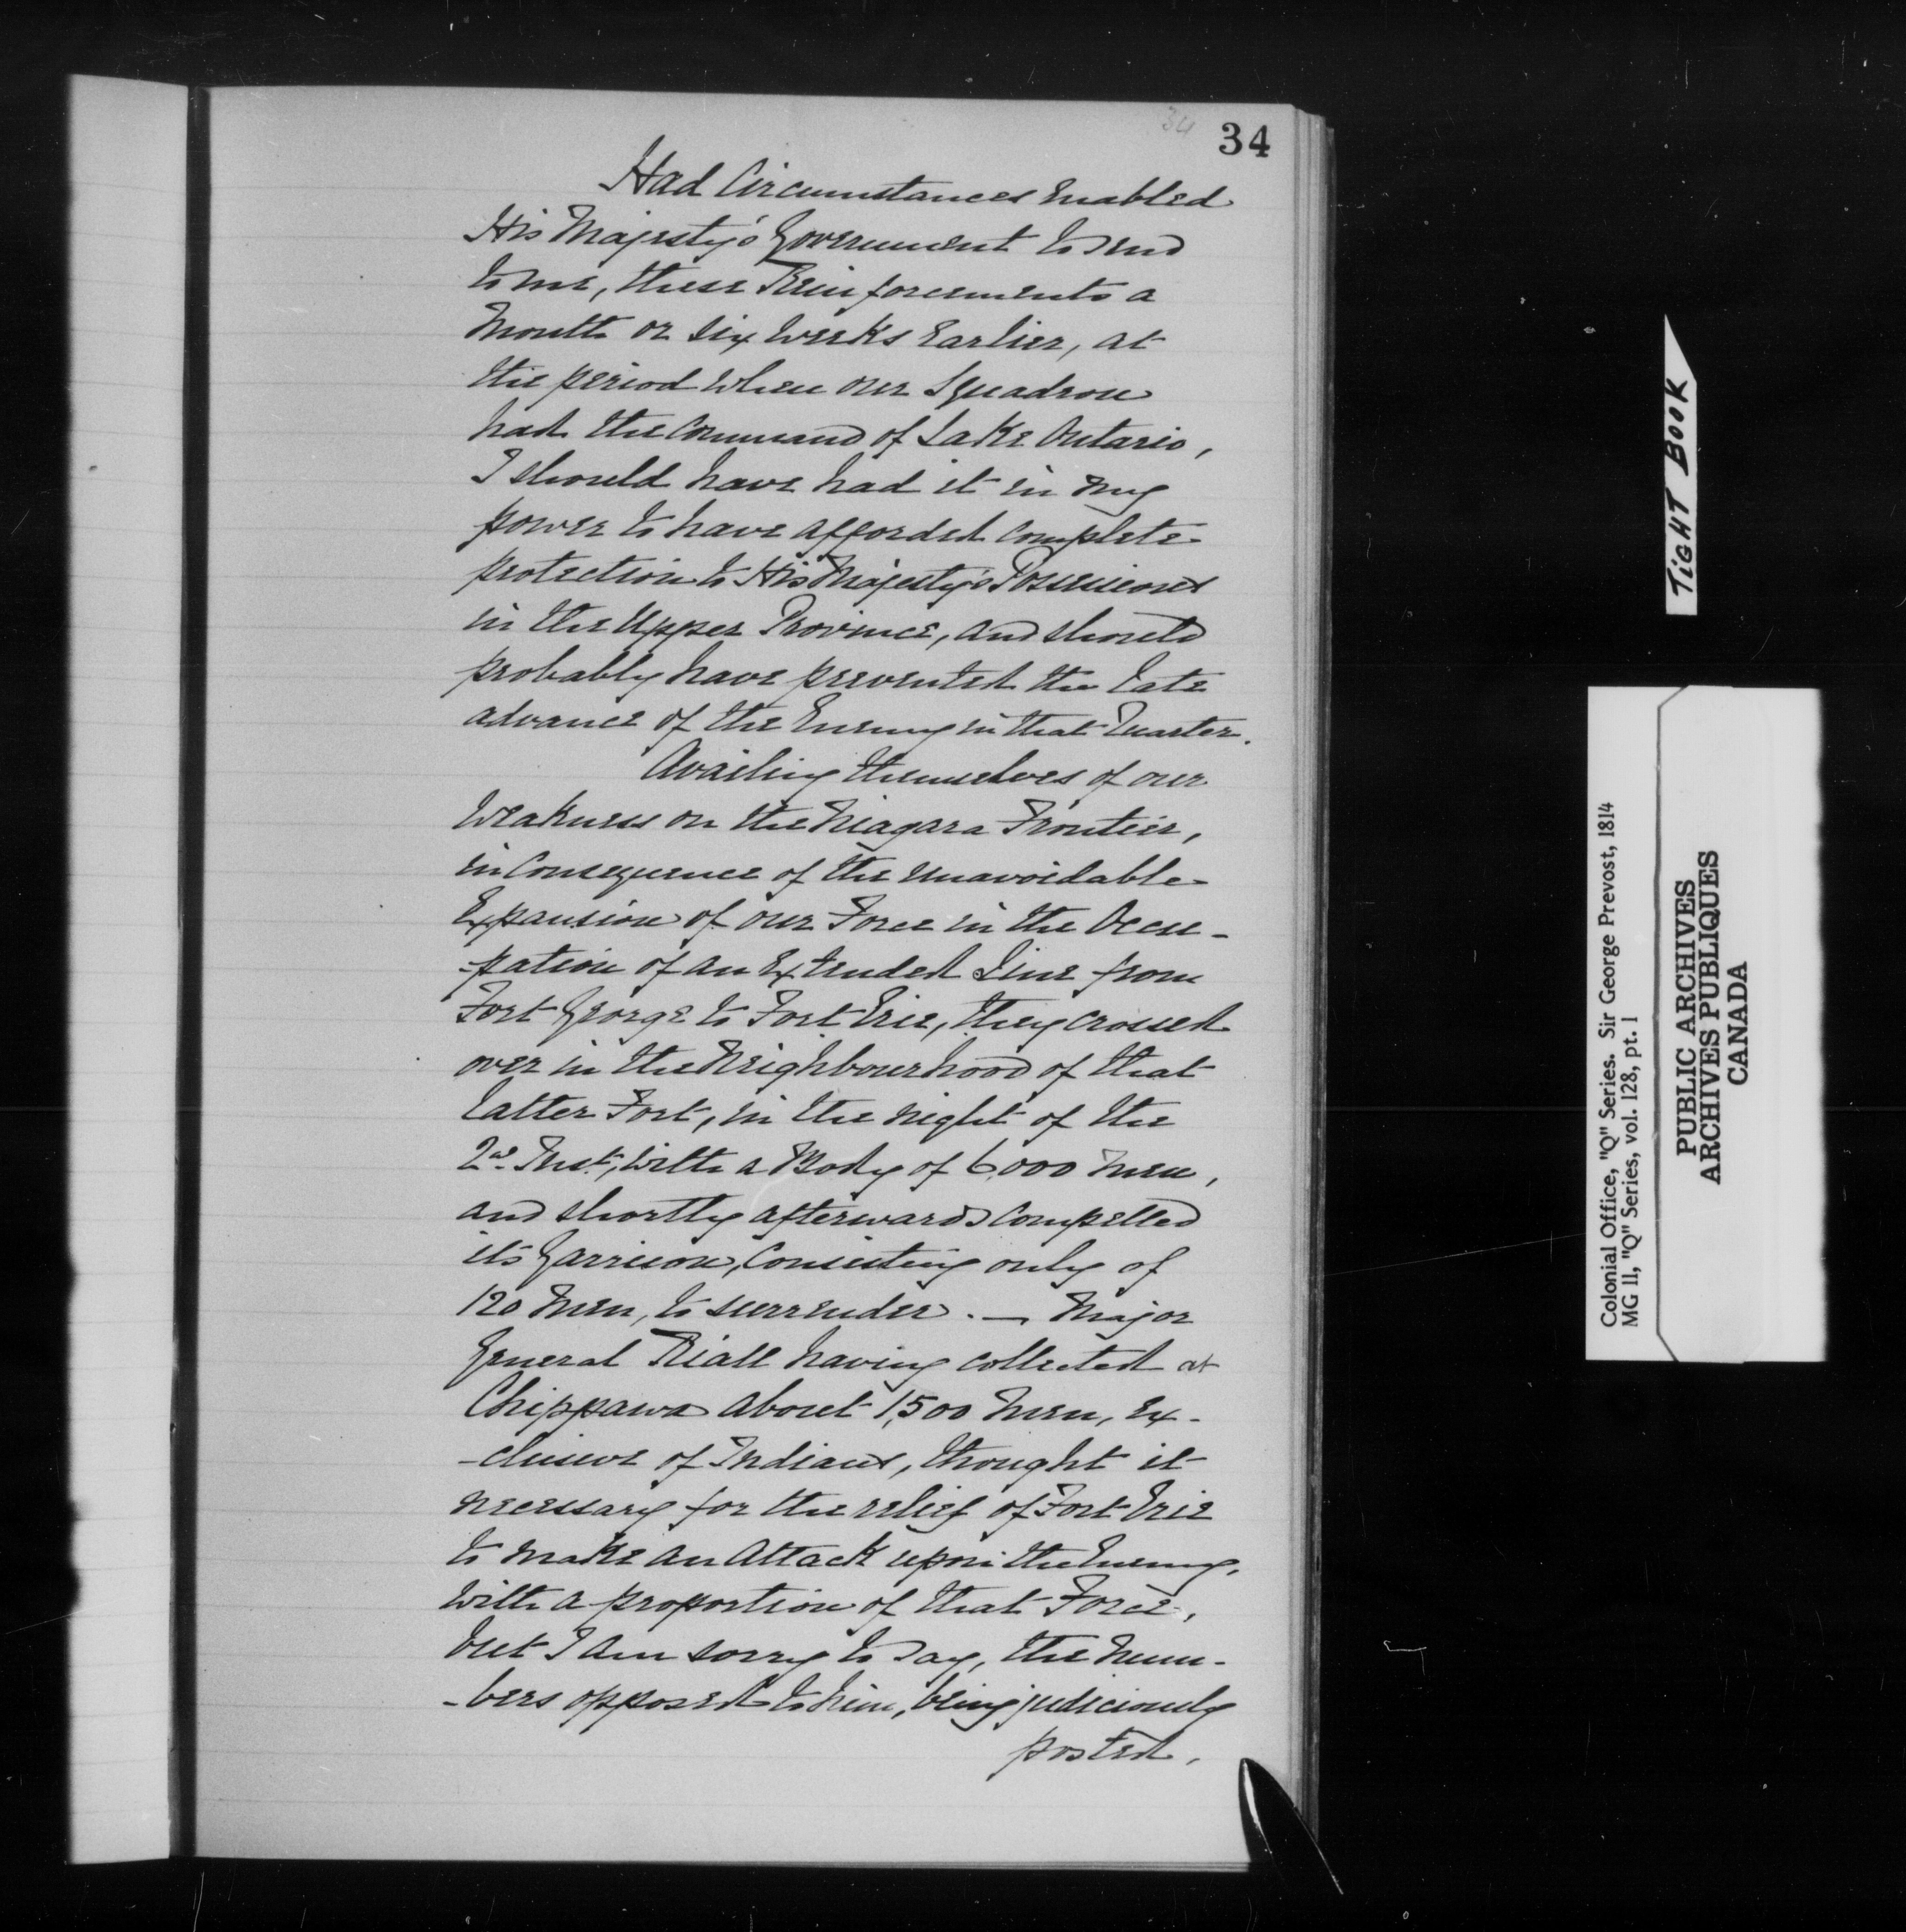 34
34
Had Circumstances enabled
His Majesty's Government to send
to me, these Reinforcements a
Month or six weeks earlier, at
the period when our Squadron
had the Command of Lake Ontario,
I should have had it in my
power to have afforded complete
protection to His Majesty's Possessions
in the Upper Province, and should
probably have prevented the late
advance of the Enemy in that Quarter.
Availing themselves of our
weakness on the Niagara Frontier,
in Consequence of the unavoidable
Expansion of our Force in the Occu-
-pation of an Extended Line from
Fort George to Fort Erie, they crossed
over in the Neighbourhood of that
latter Fort, in the night of the
2nd Inst, with a Body of 6,000 Men,
and shortly afterwards compelled
its Garrison, Consisting only of
120 Men, to surrender. — Major
General Riall having collected at
Chippawa about 1,500 Men, ex-
-clusive of Indians, thought it
necessary for the relief of Fort Erie
to make an Attack upon the Enemy,
with a proportion of that Force,
but I am sorry to say, the Num-
-bers opposed to him, being judiciously
posted,
TIGHT BOOK
Colonial Office, "Q" Series. Sir George Prevost, 1814
MG 11, "Q" Series, vol. 128, pt. 1
PUBLIC ARCHIVES
ARCHIVES PUBLIQUES
CANADA